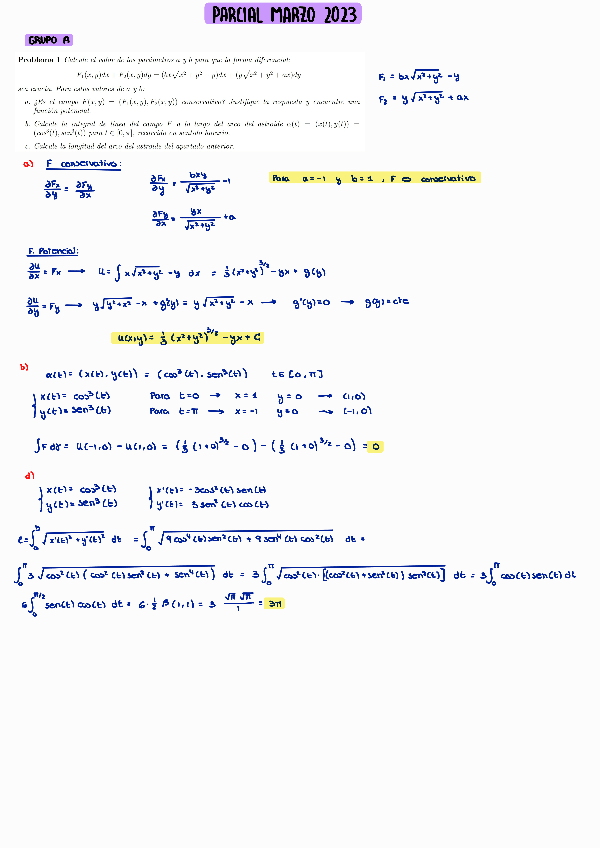 PARCIAL MARZO 2023
GRUPO A
Problema 1 Calcule el valor de los parámetros a y b para que la forma diferencial:
F₁(x,y)dx + F₂(x,y)dy = (bx√x² + y² − y)dx + (y√x² + y² + ax)dy
sea exacta. Para estos valores de a y b:
a. ¿Es el campo F(x,y) = (F₁(x,y), F₂(x,y)) conservativo? Justifique la respuesta y encuentre una
función potencial.
b. Calcule la integral de línea del campo F a lo largo del arco del astroide α(t) = (x(t), y(t)) =
(cos³(t), sen³(t)) para t ∈ [0, π], recorrida en sentido horario.
c. Calcule la longitud del arco del astroide del apartado anterior.
F₁ = bx√x²+y² − y
F₂ = y√x²+y² + ax
a) F conservativo:
∂Fx/∂y = ∂Fy/∂x
∂Fx/∂y = bxy/√x²+y² − 1
Para a=-1 y b=1, F es conservativo
∂Fy/∂x = yx/√x²+y² + a
F. Potencial:
∂u/∂x = Fx → u = ∫ x√x²+y² − y dx = 1/3 (x²+y²)^3/2 − yx + g(y)
∂u/∂y = Fy → y√y²+x² − x + g'(y) = y√x²+y² − x → g'(y)=0 → g(y)=cte
u(x,y) = 1/3 (x²+y²)^3/2 − yx + C
b)
α(t) = (x(t), y(t)) = (cos³(t), sen³(t)) t∈[0,π]
x(t) = cos³(t) Para t=0 → x=1 y=0 → (1,0)
y(t) = sen³(t) Para t=π → x=-1 y=0 → (-1,0)
∫F dr = u(-1,0) − u(1,0) = (1/3 (1+0)^3/2 − 0) − (1/3 (1+0)^3/2 − 0) = 0
d)
x(t) = cos³(t) x'(t) = -3cos²(t) sen(t)
y(t) = sen³(t) y'(t) = 3 sen²(t) cos(t)
l = ∫ₐᵇ √x'(t)² + y'(t)² dt = ∫₀^π √9 cos⁴(t) sen²(t) + 9 sen⁴(t) cos²(t) dt =
∫₀^π 3 √cos²(t) (cos²(t) sen²(t) + sen⁴(t)) dt = 3∫₀^π √cos²(t)·[(cos²(t)+sen²(t)) sen²(t)] dt = 3∫₀^π cos(t) sen(t) dt
6∫₀^π/2 sen(t) cos(t) dt = 6·1/2 β(1,1) = 3 √π √π/1 = 3π